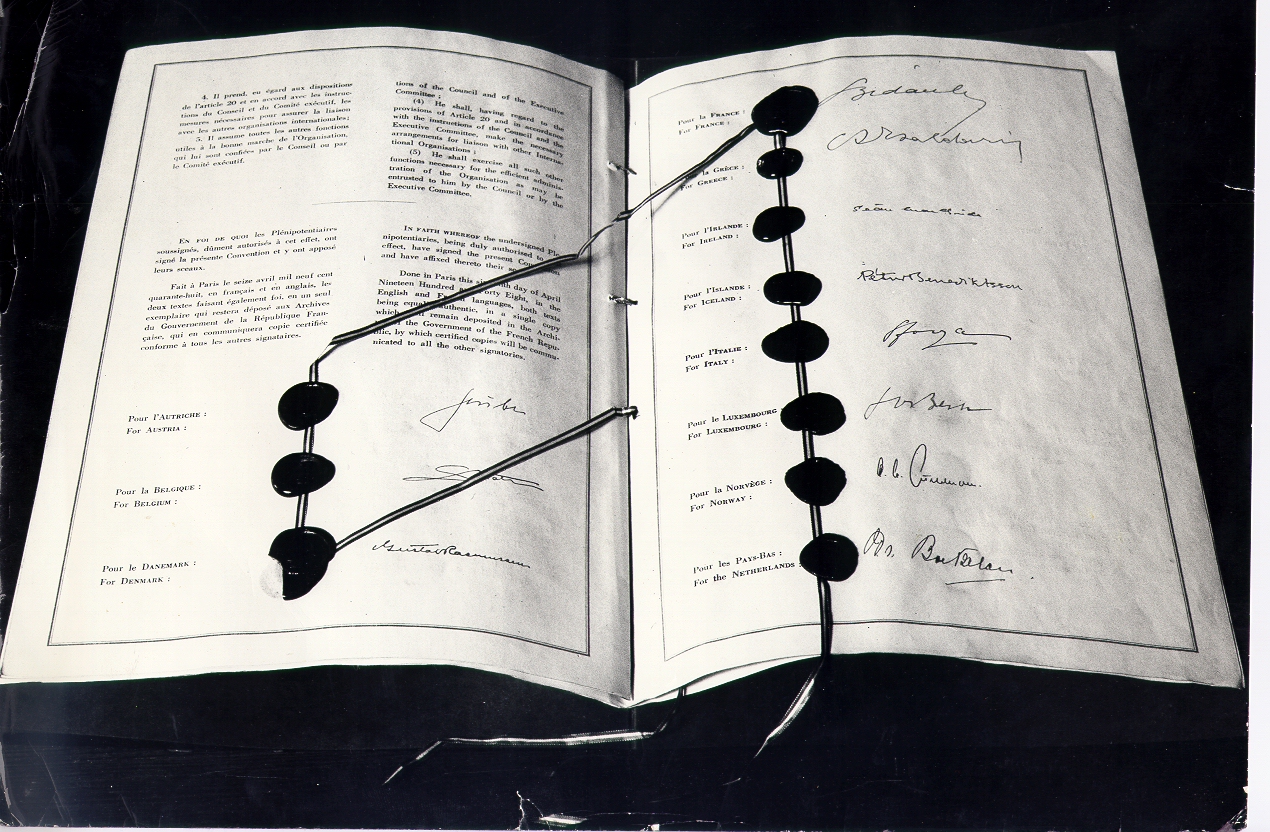 4. Il prend, eu égard aux dispositions
de l'article 20 et en accord avec les instruc-
tions du Conseil et du Comité exécutif, les
mesures nécessaires pour assurer la liaison
avec les autres organisations internationales;
5. Il assume toutes les autres fonctions
utiles à la bonne marche de l'Organisation,
qui lui sont confiées par le Conseil ou par
le Comité exécutif.
En foi de quoi les Plénipotentiaires
soussignés, dûment autorisés à cet effet, ont
signé la présente Convention et y ont apposé
leurs sceaux.
Fait à Paris le seize avril mil neuf cent
quarante-huit, en français et en anglais, les
deux textes faisant également foi, en un seul
exemplaire qui restera déposé aux Archives
du Gouvernement de la République Fran-
çaise, qui en communiquera copie certifiée
conforme à tous les autres signataires.
tions of the Council and of the Executive
Committee;
(4) He shall, having regard to the
provisions of Article 20 and in accordance
with the instructions of the Council and the
Executive Committee, make the necessary
arrangements for liaison with other Interna-
tional Organisations;
(5) He shall exercise all such other
functions necessary for the efficient adminis-
tration of the Organisation as may be
entrusted to him by the Council or by the
Executive Committee.
In faith whereof the undersigned Ple-
nipotentiaries, being duly authorised to
effect, have signed the present
and have affixed thereto their
Done in Paris this day of April
Nineteen Hundred Forty Eight, in the
English and languages, both texts
being authentic, in a single copy
which remain deposited in the Archi-
the Government of the French Repu-
blic, by which certified copies will be commu-
nicated to all the other signatories.
Pour l'Autriche :
For Austria :
Pour la Belgique :
For Belgium :
Pour le Danemark :
For Denmark :
Gustav Rasmussen
Pour la France :
For France :
Bidault
la Grèce :
For Greece :
Pour l'Irlande :
For Ireland :
Seán MacBride
Pour l'Islande :
For Iceland :
Pétur Benediktsson
Pour l'Italie :
For Italy :
Sforza
Pour le Luxembourg
For Luxembourg :
Jos Bech
Pour la Norvège :
For Norway :
Pour les Pays-Bas :
For the Netherlands :